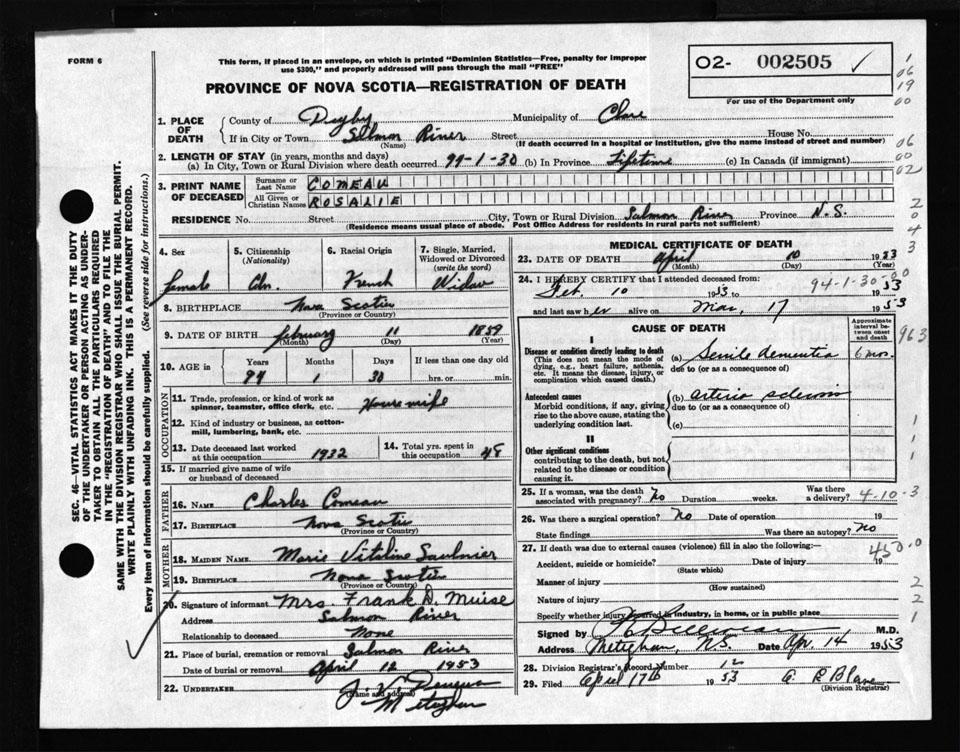 FORM 6
This form, if placed in an envelope, on which is printed "Dominion Statistics—Free, penalty for improper
use $300," and properly addressed will pass through the mail "FREE"
PROVINCE OF NOVA SCOTIA—REGISTRATION OF DEATH
02- 002505 ✓
For use of the Department only
1 06 19 00
06 00 02
2 0 4 3
963
1 1 1
2 2 1
SEC. 46—VITAL STATISTICS ACT MAKES IT THE DUTY
OF THE UNDERTAKER OR PERSON ACTING AS UNDER-
TAKER TO OBTAIN ALL THE PARTICULARS REQUIRED
IN THE "REGISTRATION OF DEATH" AND TO FILE THE
SAME WITH THE DIVISION REGISTRAR WHO SHALL ISSUE THE BURIAL PERMIT.
WRITE PLAINLY WITH UNFADING INK. THIS IS A PERMANENT RECORD.
Every item of information should be carefully supplied. (See reverse side for instructions.)
1. PLACE OF DEATH
County of Digby Municipality of Clare
If in City or Town Salmon River Street House No.
(Name) (If death occurred in a hospital or institution, give the name instead of street and number)
2. LENGTH OF STAY (in years, months and days)
(a) In City, Town or Rural Division where death occurred 94-1-30 (b) In Province Lifetime (c) In Canada (if immigrant)
3. PRINT NAME OF DECEASED
Surname or Last Name COMEAU
All Given or Christian Names ROSALIE
RESIDENCE No. Street City, Town or Rural Division Salmon River Province N.S.
(Residence means usual place of abode. Post Office Address for residents in rural parts not sufficient)
4. Sex
female
5. Citizenship
(Nationality)
Cdn.
6. Racial Origin
French
7. Single, Married,
Widowed or Divorced
(write the word)
Widow
8. BIRTHPLACE Nova Scotia
(Province or Country)
9. DATE OF BIRTH february 11 1859
(Month) (Day) (Year)
10. AGE in
Years Months Days If less than one day old
94 1 30 hrs. or min.
OCCUPATION
11. Trade, profession, or kind of work as
spinner, teamster, office clerk, etc. Housewife
12. Kind of industry or business, as cotton-
mill, lumbering, bank, etc.
13. Date deceased last worked
at this occupation 1932
14. Total yrs. spent in
this occupation 48
15. If married give name of wife
or husband of deceased
FATHER
16. NAME Charles Comeau
17. BIRTHPLACE Nova Scotia
(Province or Country)
MOTHER
18. MAIDEN NAME Marie Vitaline Saulnier
19. BIRTHPLACE Nova Scotia
(Province or Country)
20. Signature of informant Mrs. Frank D. Muise
Address Salmon River
Relationship to deceased None
21. Place of burial, cremation or removal Salmon River
Date of burial or removal April 12 1953
22. UNDERTAKER J. V.
(Name and address)
Meteghan
MEDICAL CERTIFICATE OF DEATH
23. DATE OF DEATH April 10 1953
(Month) (Day) (Year)
24. I HEREBY CERTIFY that I attended deceased from:
Feb. 10 1953 94-1-30-00 1953
and last saw her alive on Mar. 17 1953
CAUSE OF DEATH
Approximate
interval be-
tween onset
and death
I
Disease or condition directly leading to death
(This does not mean the mode of
dying, e.g., heart failure, asthenia,
etc. It means the disease, injury, or
complication which caused death.)
(a) Senile dementia 6 mos.
due to (or as a consequence of)
Antecedent causes
Morbid conditions, if any, giving
rise to the above cause, stating the
underlying condition last.
(b) arterio sclerosis
due to (or as a consequence of)
(c)
II
Other significant conditions
contributing to the death, but not
related to the disease or condition
causing it.
25. If a woman, was the death
associated with pregnancy? No Duration weeks. Was there
a delivery? 4-10-3
26. Was there a surgical operation? No Date of operation 19
State findings Was there an autopsy? No
27. If death was due to external causes (violence) fill in also the following:— 450.0
Accident, suicide or homicide? Date of injury 19
(State which)
Manner of injury
(How sustained)
Nature of injury
Specify whether injury occurred in industry, in home, or in public place
Signed by M.D.
Address Meteghan, N.S. Date Apr. 14 1953
28. Division Registrar's Record Number 12
29. Filed April 17th 1953
(Division Registrar)